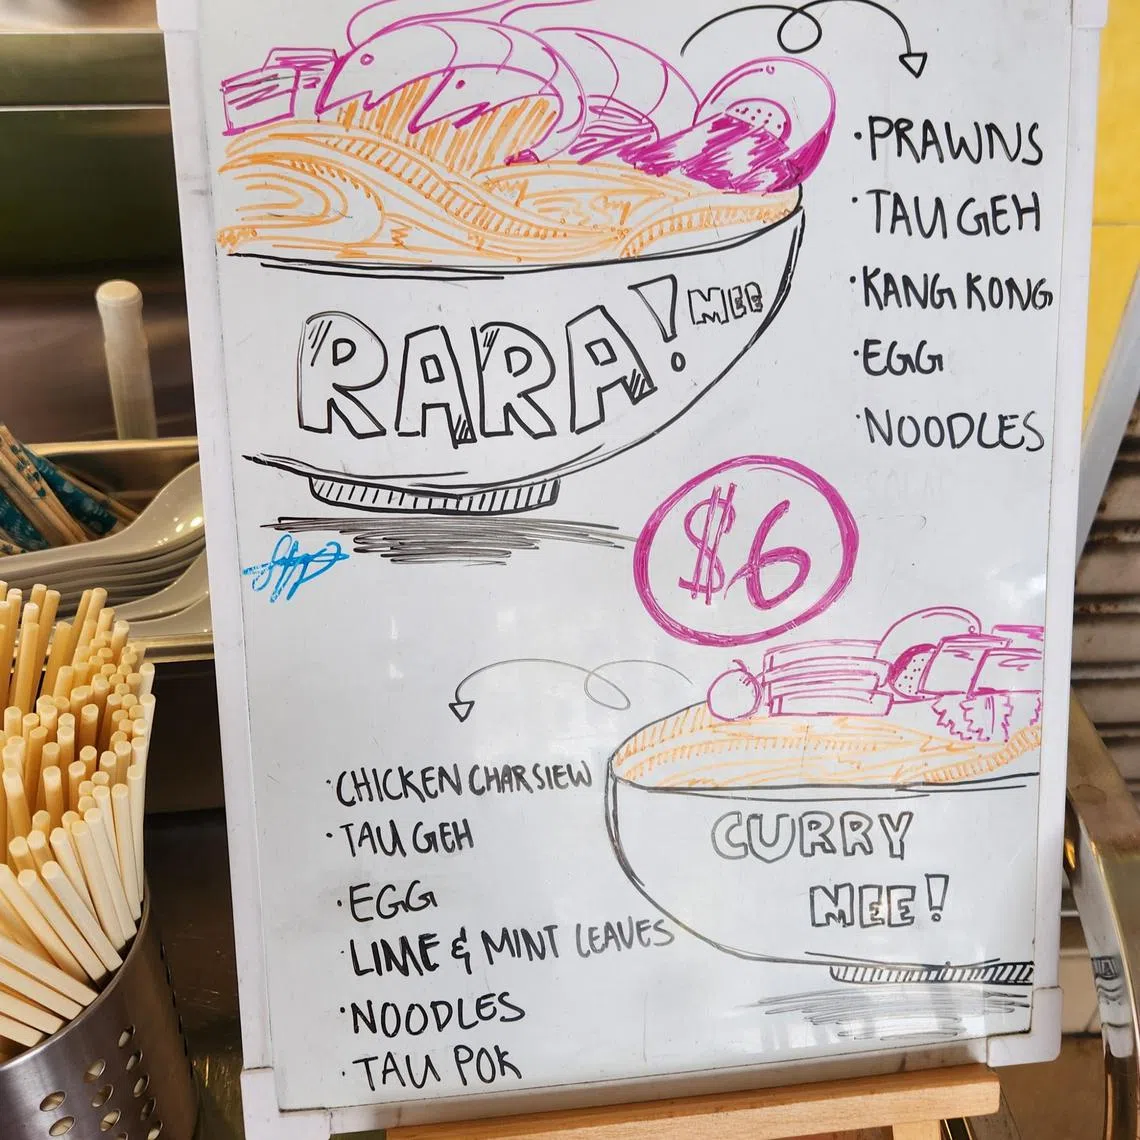 RARA! MEE
·PRAWNS
·TAUGEH
·KANG KONG
·EGG
·NOODLES
$6
CURRY
MEE!
·CHICKEN CHARSIEW
·TAU GEH
·EGG
·LIME & MINT LEAVES
·NOODLES
·TAU POK